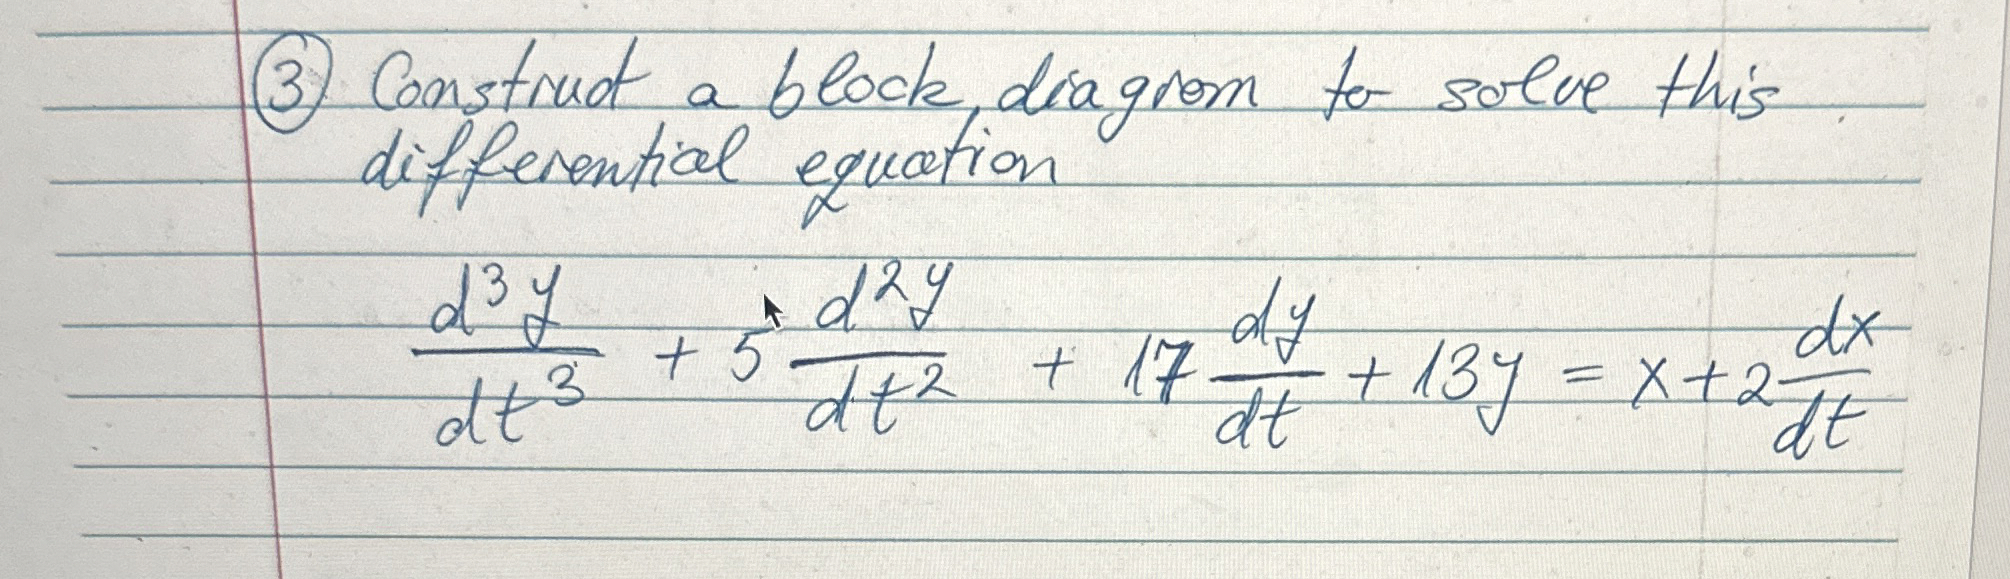 ③ Construct a block diagram to solve this
differential equation
d³y/dt³ + 5 d²y/dt² + 17 dy/dt + 13y = x + 2 dx/dt